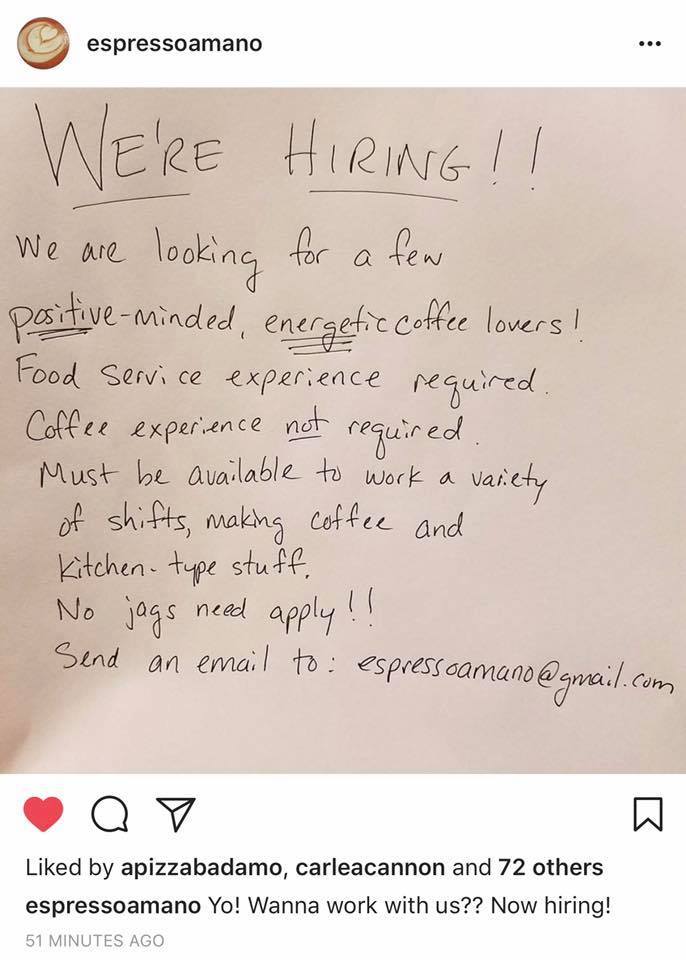 espressoamano
WE'RE HIRING!!
We are looking for a few
positive-minded, energetic coffee lovers!
Food Service experience required.
Coffee experience not required.
Must be available to work a variety
of shifts, making coffee and
kitchen-type stuff.
No jags need apply!!
Send an email to: espressoamano@gmail.com
Liked by apizzabadamo, carleacannon and 72 others
espressoamano Yo! Wanna work with us?? Now hiring!
51 MINUTES AGO